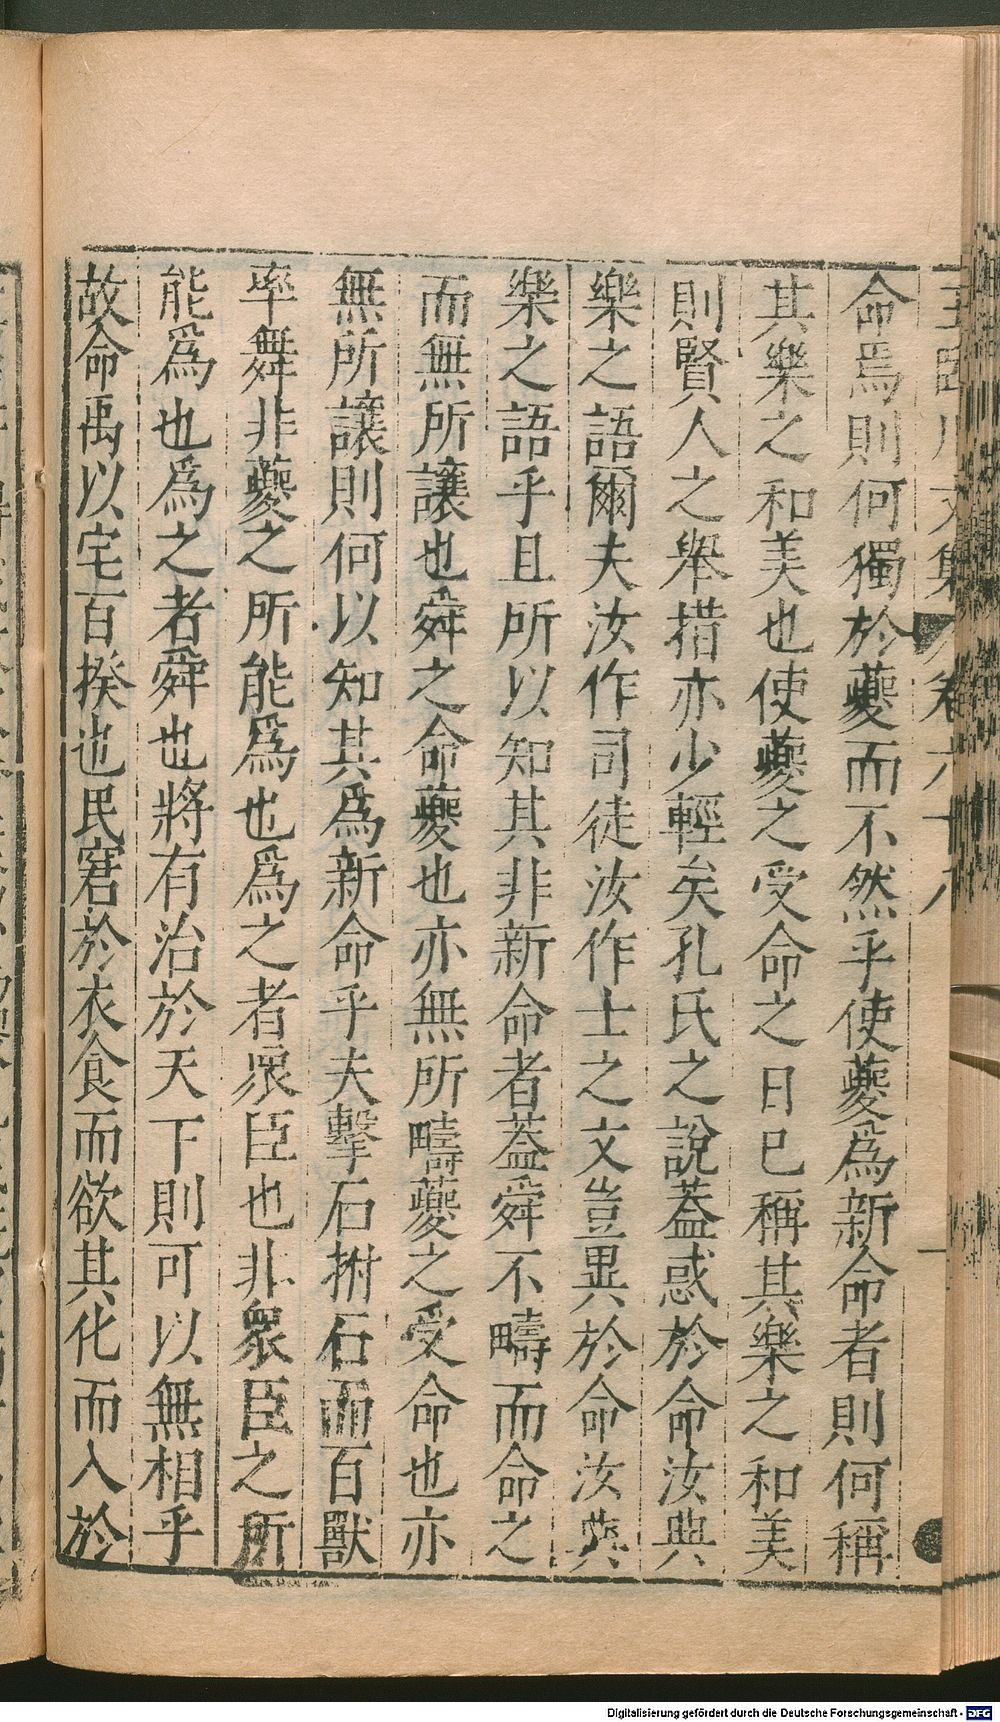 王臨川文集 卷六十八 一
命焉則何獨於夔而不然乎使夔爲新命者則何稱
其樂之和美也使夔之受命之日已稱其樂之和美
則賢人之舉措亦少輕矣孔氏之說蓋惑於命汝典
樂之語爾夫汝作司徒汝作士之文豈異於命汝典
樂之語乎且所以知其非新命者蓋舜不疇而命之
而無所讓也舜之命夔也亦無所疇夔之受命也亦
無所讓則何以知其爲新命乎夫擊石拊石而百獸
率舞非夔之所能爲也爲之者衆臣也非衆臣之所
能爲也爲之者舜也將有治於天下則可以無相乎
故命禹以宅百揆也民窘於衣食而欲其化而入於
Digitalisierung gefördert durch die Deutsche Forschungsgemeinschaft - DFG